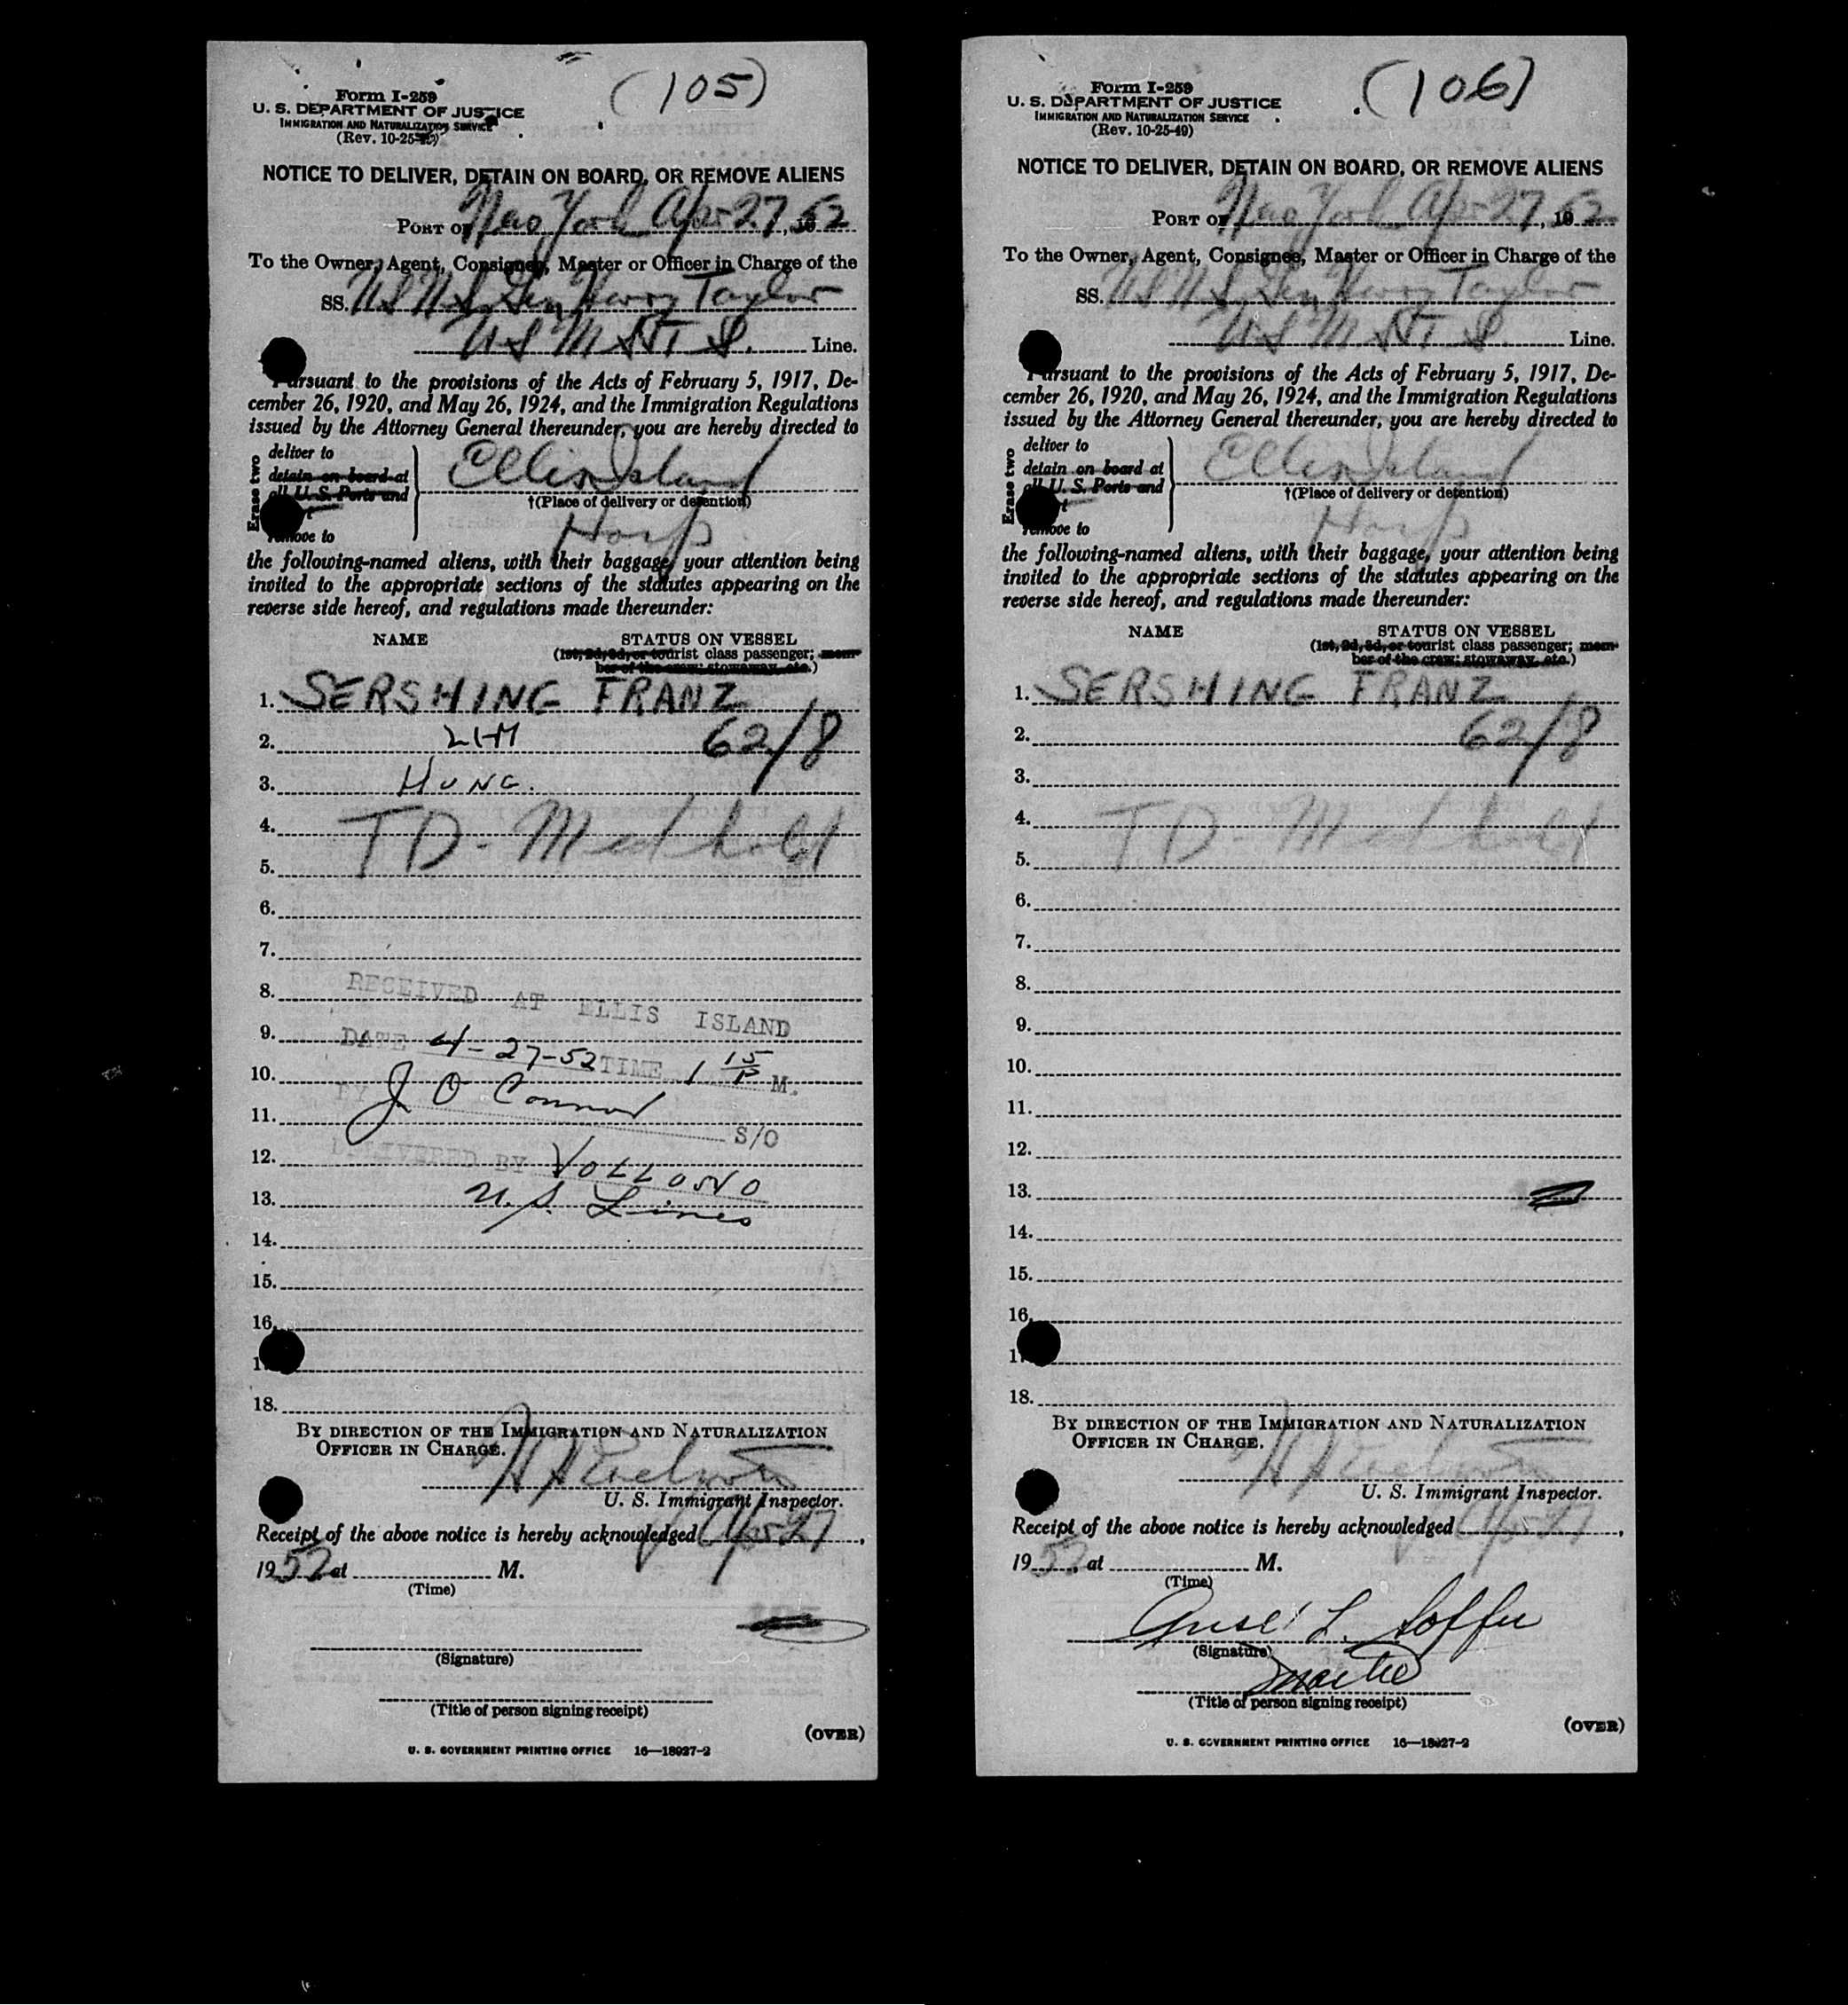 (105)
Form I-259
U. S. DEPARTMENT OF JUSTICE
IMMIGRATION AND NATURALIZATION SERVICE
(Rev. 10-25-49)
NOTICE TO DELIVER, DETAIN ON BOARD, OR REMOVE ALIENS
PORT OF New York Apr 27, 1952
To the Owner, Agent, Consignee, Master or Officer in Charge of the
SS. USNS Gen Harry Taylor
USMSTS. Line.
Pursuant to the provisions of the Acts of February 5, 1917, De-
cember 26, 1920, and May 26, 1924, and the Immigration Regulations
issued by the Attorney General thereunder, you are hereby directed to
Erase two
deliver to
detain on board at
all U. S. Ports and
remove to
Ellis Island
†(Place of delivery or detention)
Hosp
the following-named aliens, with their baggage, your attention being
invited to the appropriate sections of the statutes appearing on the
reverse side hereof, and regulations made thereunder:
NAME STATUS ON VESSEL
(1st, 2d, 3d, or tourist class passenger; mem-
ber of the crew; stowaway, etc.)
1. SERSHING FRANZ
2. 21-M 62/8
3. HUNG.
4. TD - Med hold
5.
6.
7.
8. RECEIVED AT ELLIS ISLAND
9. DATE 4-27-52 TIME 1 15 P M.
10. BY J. O Connor
11. S/O
12. DELIVERED BY VOLLONO
13. U.S. Lines
14.
15.
16.
17.
18.
BY DIRECTION OF THE IMMIGRATION AND NATURALIZATION
OFFICER IN CHARGE.
U. S. Immigrant Inspector.
Receipt of the above notice is hereby acknowledged Apr 27,
1952 at M.
(Time)
(Signature)
(Title of person signing receipt)
(OVER)
U. S. GOVERNMENT PRINTING OFFICE 16—18027-2
(106)
Form I-259
U. S. DEPARTMENT OF JUSTICE
IMMIGRATION AND NATURALIZATION SERVICE
(Rev. 10-25-49)
NOTICE TO DELIVER, DETAIN ON BOARD, OR REMOVE ALIENS
PORT OF New York Apr 27, 1952
To the Owner, Agent, Consignee, Master or Officer in Charge of the
SS. USNS Gen Harry Taylor
USMSTS Line.
Pursuant to the provisions of the Acts of February 5, 1917, De-
cember 26, 1920, and May 26, 1924, and the Immigration Regulations
issued by the Attorney General thereunder, you are hereby directed to
Erase two
deliver to
detain on board at
all U. S. Ports and
remove to
Ellis Island
†(Place of delivery or detention)
Hosp
the following-named aliens, with their baggage, your attention being
invited to the appropriate sections of the statutes appearing on the
reverse side hereof, and regulations made thereunder:
NAME STATUS ON VESSEL
(1st, 2d, 3d, or tourist class passenger; mem-
ber of the crew; stowaway, etc.)
1. SERSHING FRANZ
2. 62/8
3.
4. TD - Med hold
5.
6.
7.
8.
9.
10.
11.
12.
13.
14.
15.
16.
17.
18.
BY DIRECTION OF THE IMMIGRATION AND NATURALIZATION
OFFICER IN CHARGE.
U. S. Immigrant Inspector.
Receipt of the above notice is hereby acknowledged Apr 27,
1952, at M.
(Time)
L.
(Signature)
(Title of person signing receipt)
(OVER)
U. S. GOVERNMENT PRINTING OFFICE 16—18027-2